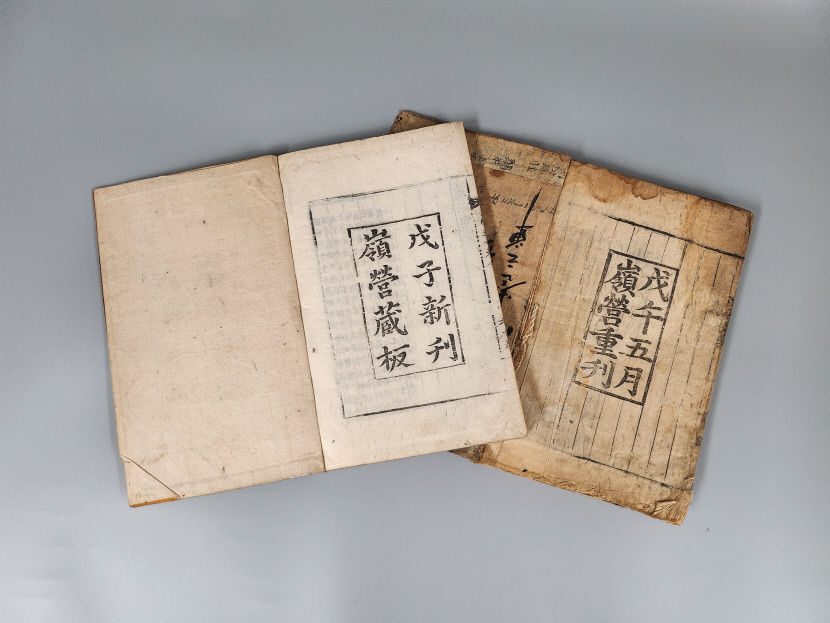 戊子新刊
嶺營藏板
戊午五月
嶺營重刊